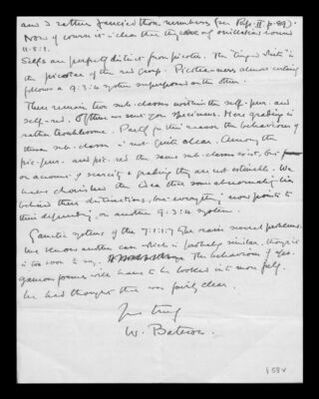 and I rather
Now of course it is clear that they are oscillations round
11.5.1.
Selfs are perfectly distinct from picotee. The "tinged white" is
the picotee of the red group. Picotee-ness almost certainly
follows a 9:3:4 system superposed on the other.
There remain two sub-classes within the self-pur. and
self-red. Of these we send you specimens. Here grading is
rather troublesome. Partly for this reason the behaviour of
these sub-classes is not quite clear. Among the
pic-pur. and pic-red the same sub-classes exist, but
on account of scarcity & grading they are not estimable. We
have cherished the idea that some abnormality lies
behind these distinctions, but everything now points to
their depending on another 9:3:4 system.
Gametic systems of the 7:1:1:7 type raise several problems.
We know another case which is probably similar, though it
is too soon to say. The behaviour of
gametic will have to be looked into more fully.
We had thought this was fairly clear.
Yours truly
W. Bateson.